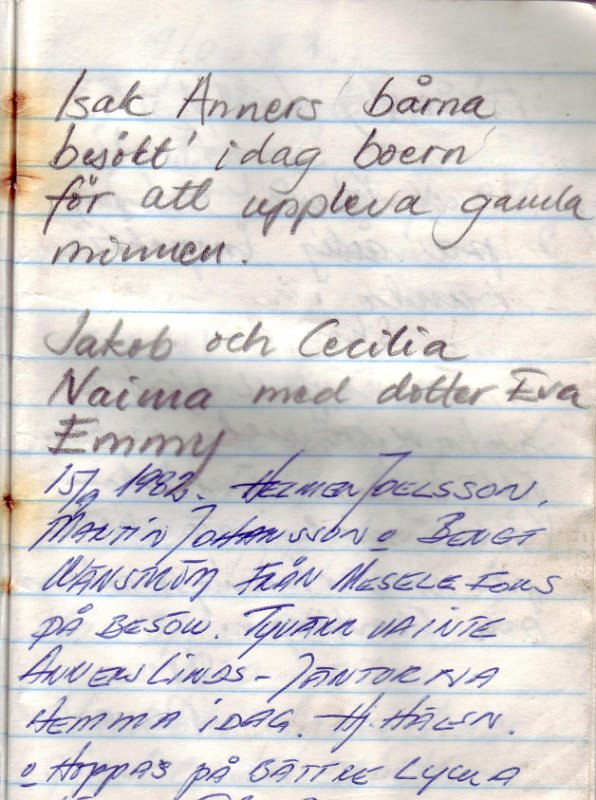 Isak Anners' bårna
besökt' idag boern'
för att uppleva gamla
minnen.
Jakob och Cecilia
Naima med dotter Eva
Emmy
15/9 1982. Helmer Joelsson,
Martin Johansson o Bengt
Wänström från Meselefors
på besök. Tyvärr va inte
Anners Linds-Jäntorna
hemma idag. Hj. Hälsn.
o Hoppas på bättre lycka